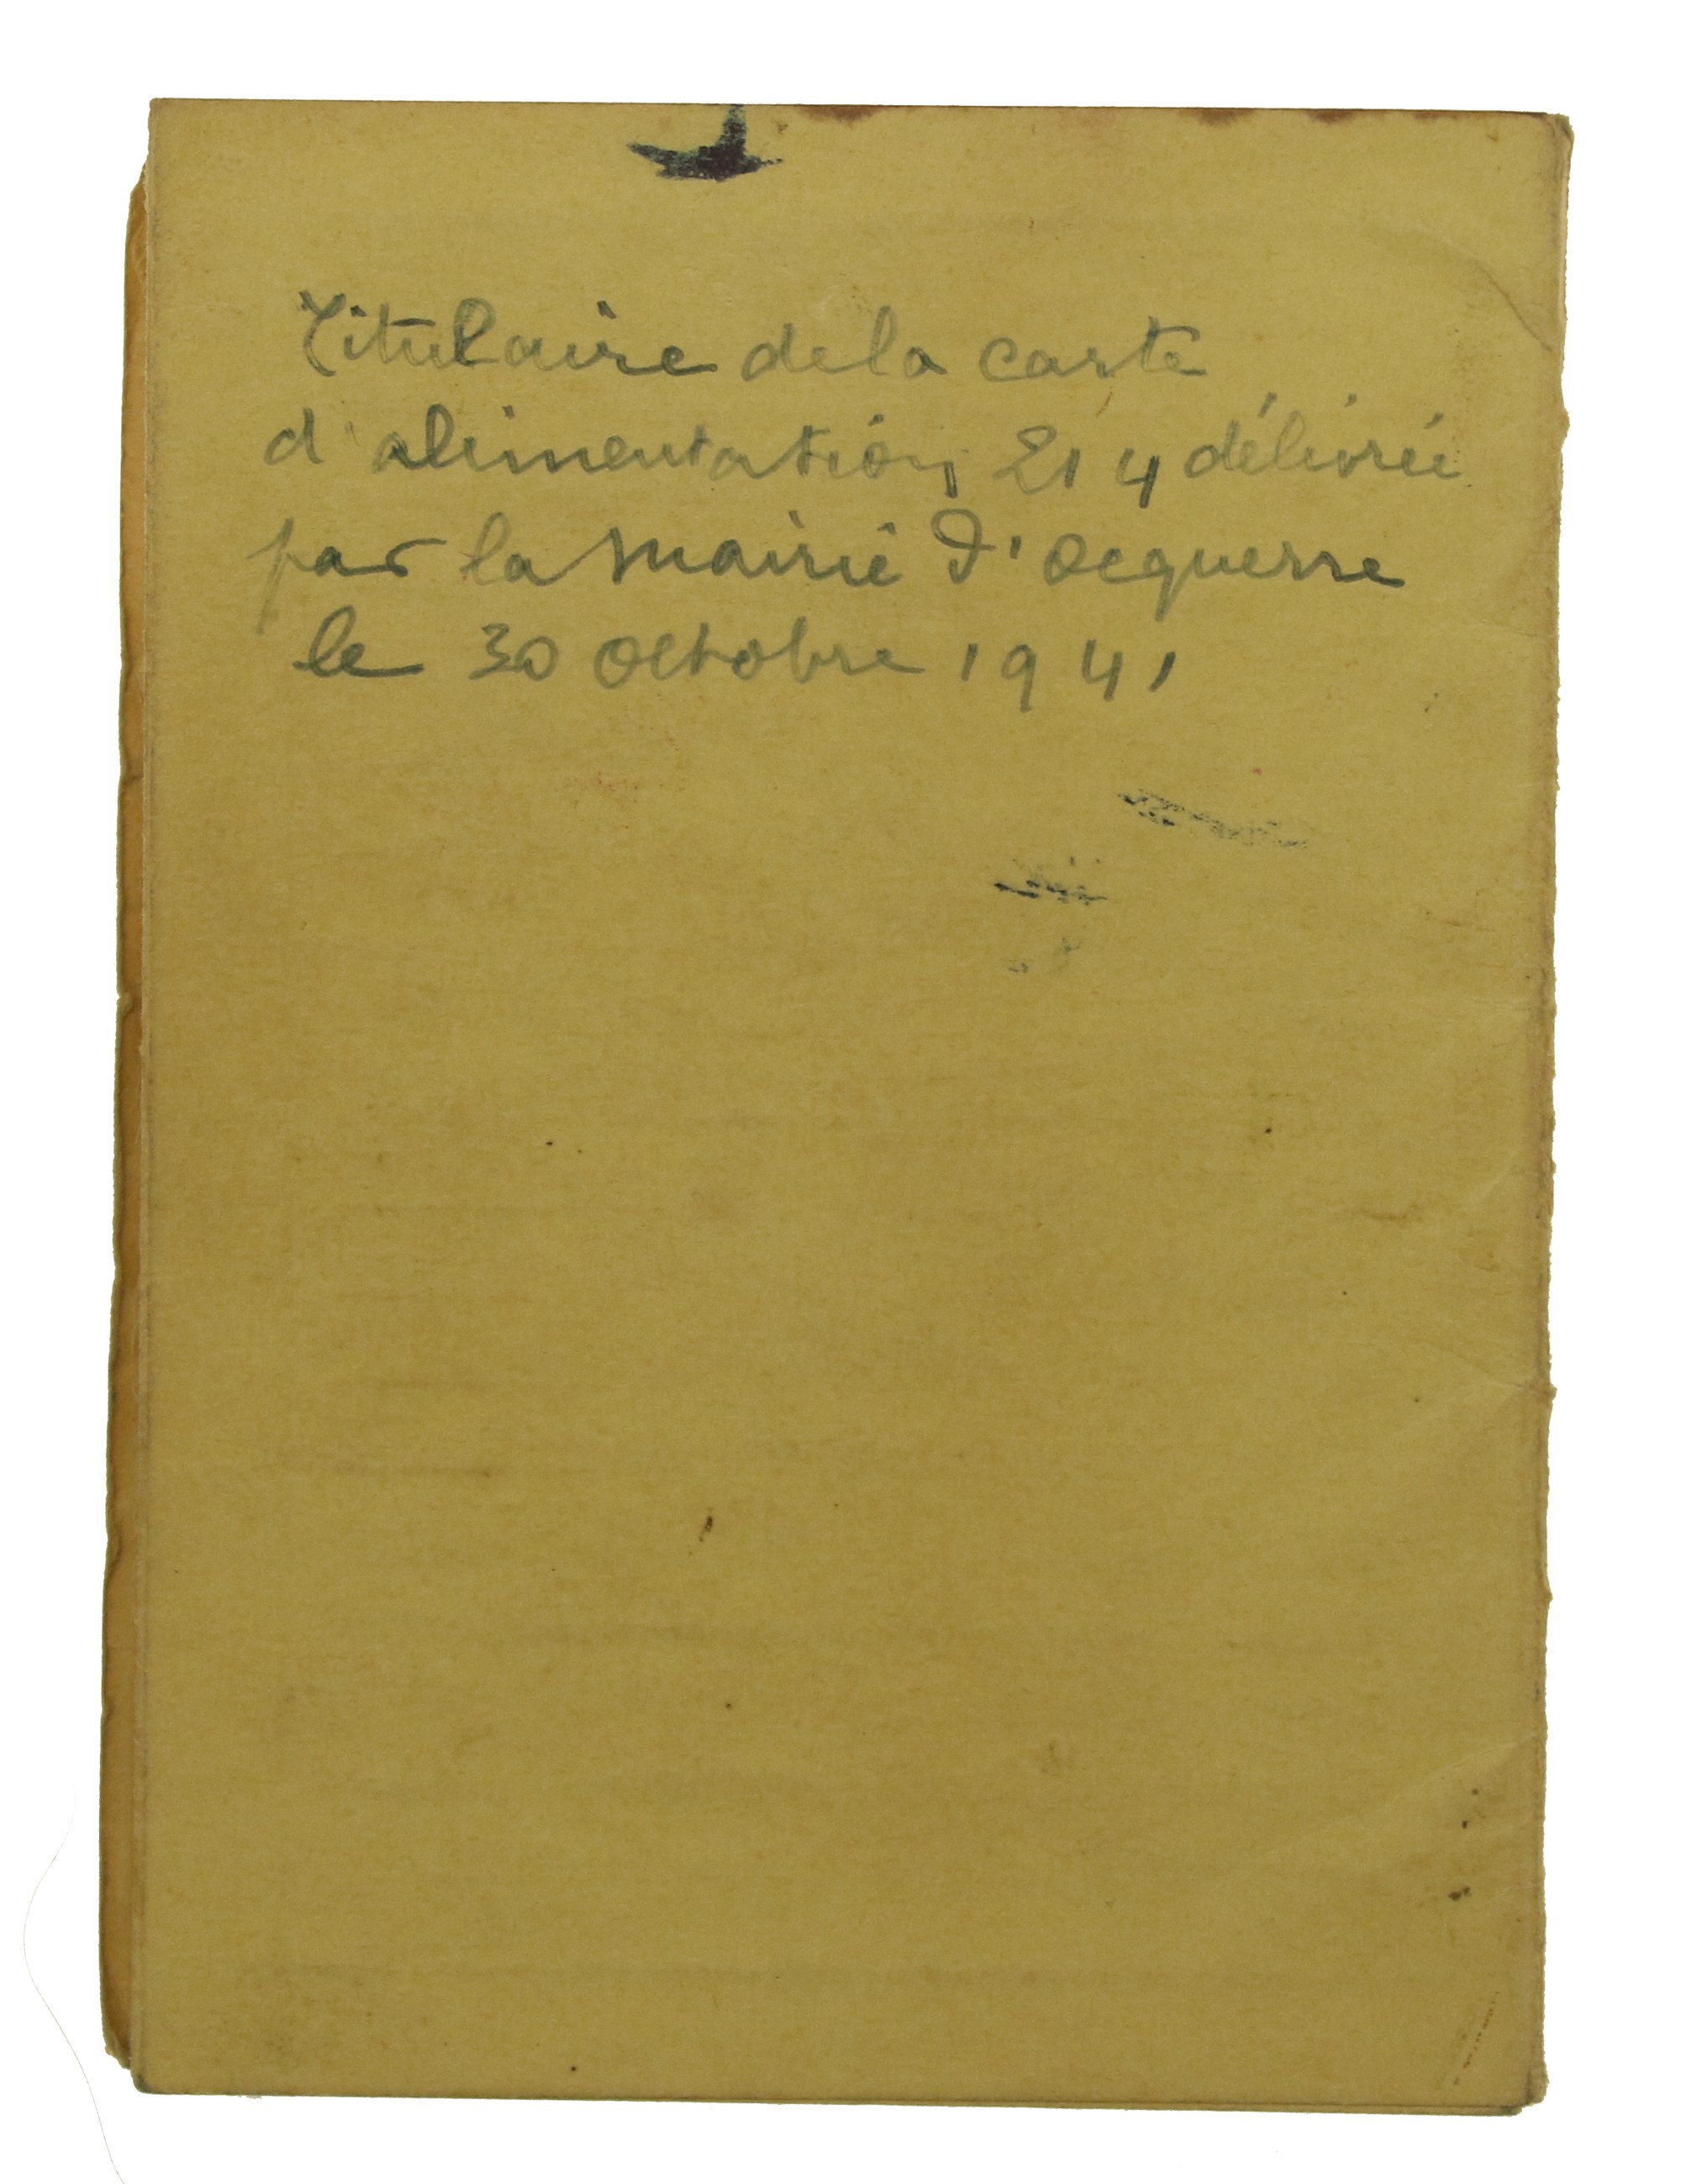 Titulaire de la carte
d'alimentation 214 délivrée
par la mairie d'ocquerre
le 30 octobre 1941